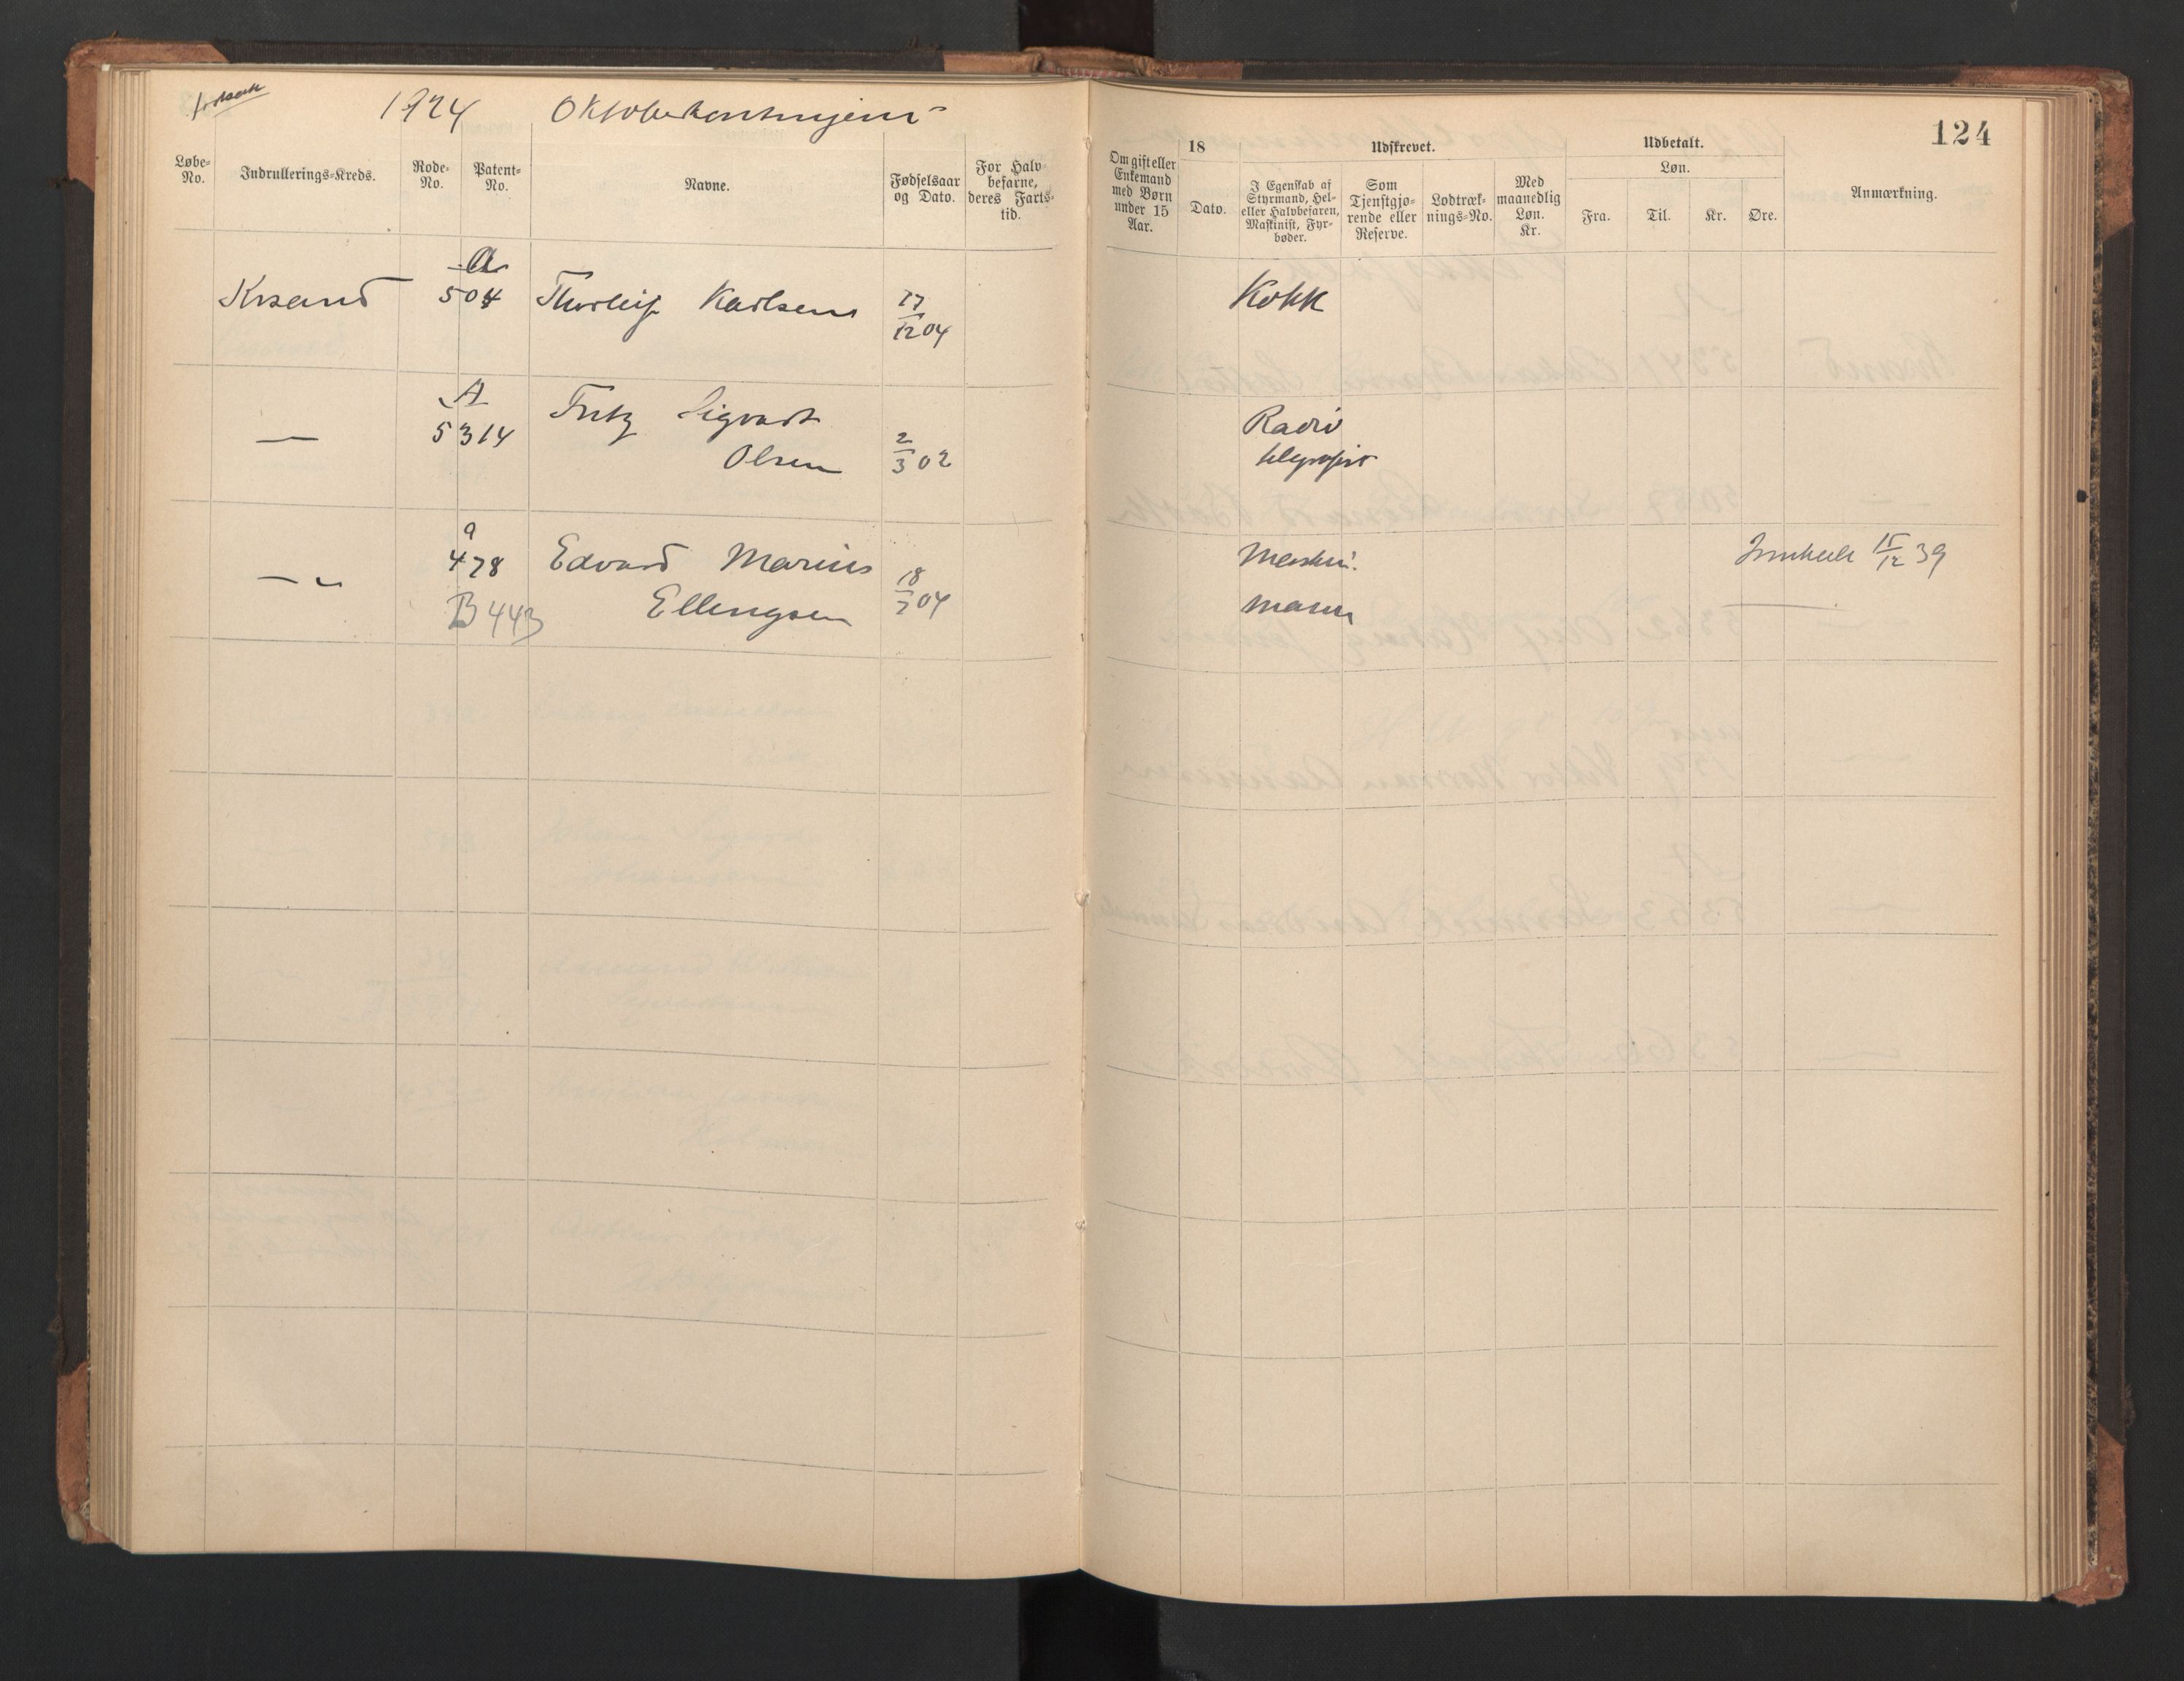 1924 Oktoberkontingent
124
Løbe-No.
Indrullerings-Kreds.
Rode-No.
Patent-No.
Navne.
Fødselsaar og Dato.
For Halvbefarne, deres Fartstid.
Om gift eller Enkemand med Børn under 15 Aar.
18
Dato.
Udskrevet.
I Egenskab af Styrmand, Hel- eller Halvbefaren, Maskinist, Fyrbøder.
Som Tjenstgjørende eller Reserve.
Lodtræknings-No.
Med maanedlig Løn. Kr.
Udbetalt.
Løn.
Fra.
Til.
Kr.
Øre.
Anmærkning.
A
Krsand 504 Thorleif Karlsen 17/12 04 Kokk
A
— 5314 Fritz Sigvart
Olsen 2/3 02 Radio
telegrafist
a
— 478 Edvard Marius
B 443 Ellingsen 18/7 04 Maskin.
mann
15/12 39